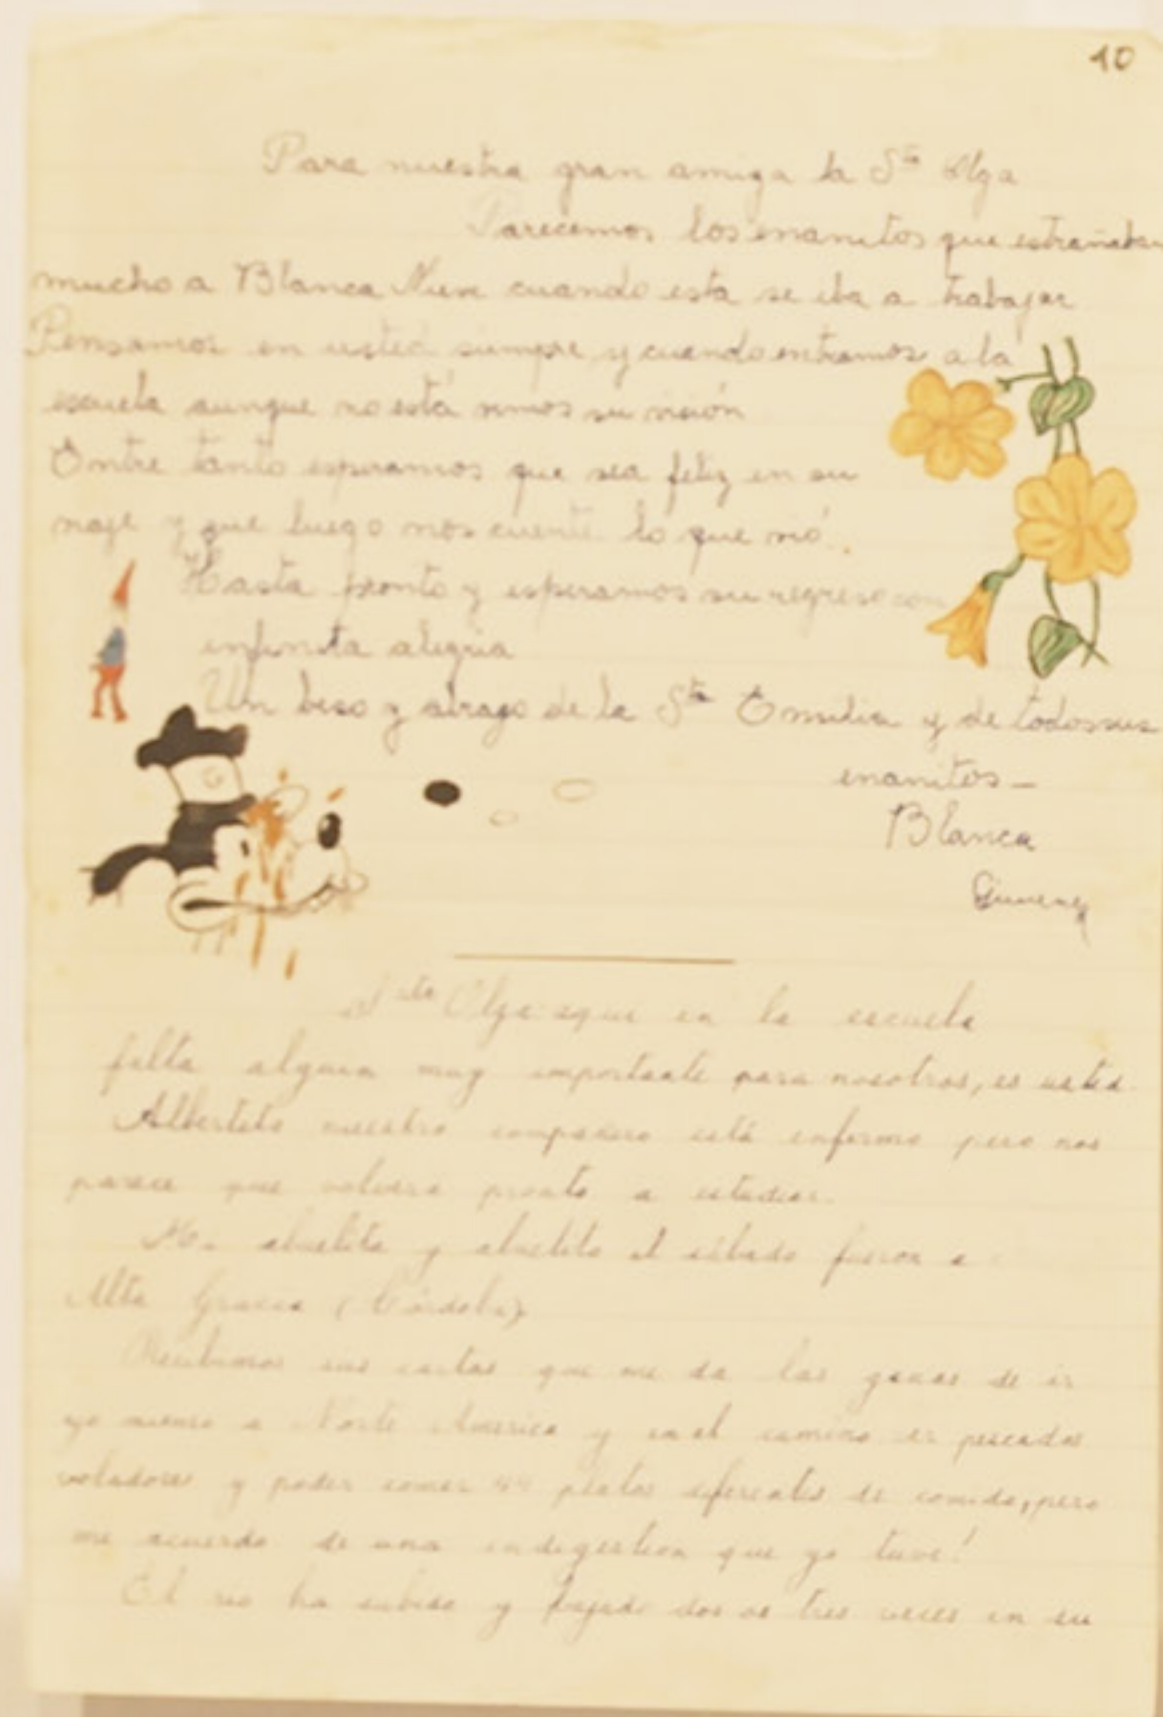 10
Para nuestra gran amiga la Sta Olga
Parecemos los enanitos que extrañaban
mucho a Blanca Nieve cuando esta se iba a trabajar
Pensamos en usted siempre y cuando entramos a la
escuela aunque no está vemos su visión
Entre tanto esperamos que sea feliz en su
viaje y que luego nos cuente lo que vió.
Hasta pronto y esperamos su regreso con
infinita alegria
Un beso y abrazo de la Sta Emilia y de todos sus
enanitos—
Blanca
Gimenez
Sta Olga: aqui en la escuela
falta alguien muy importante para nosotros, es usted.
Albertito nuestro compañero está enfermo pero nos
parece que volverá pronto a estudiar.
Mi abuelita y abuelito el sábado fueron a
Alta Gracia (Córdoba)
Recibimos sus cartas que me da las ganas de ir
yo mismo a Norte America y en el camino ver pescados
voladores y poder comer 44 platos diferentes de comida, pero
me acuerdo de una indigestión que yo tuve!
El rio ha subido y bajado dos o tres veces en su